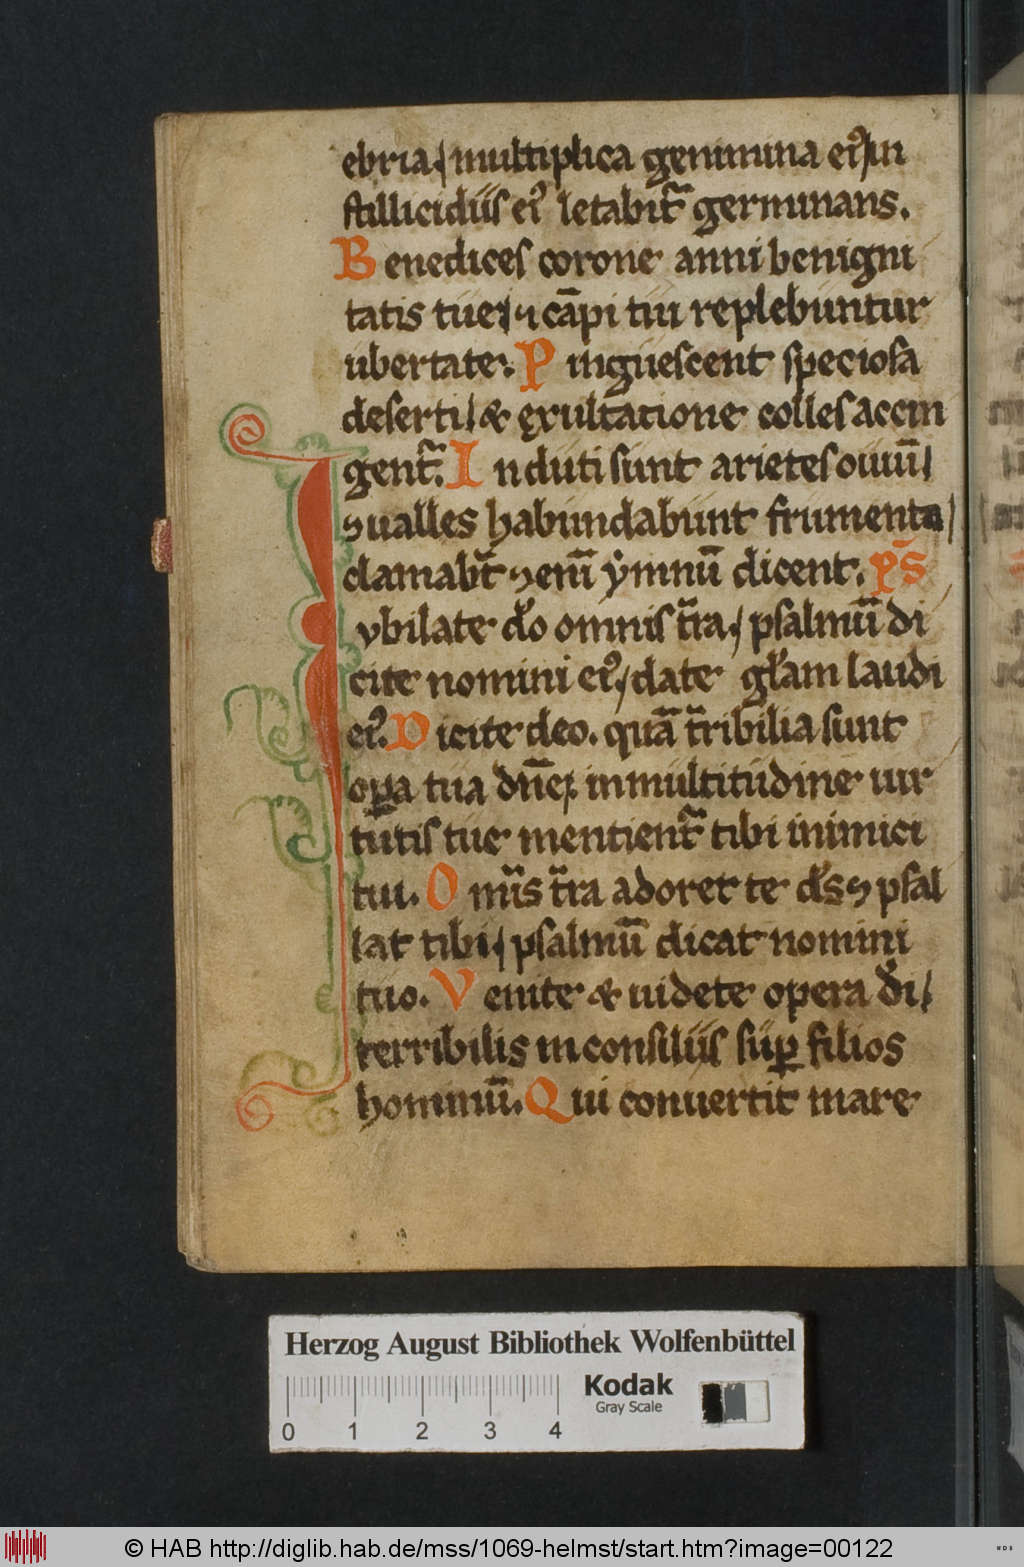 ebria / multiplica genimina eiꝰ / in
stillicidiis eiꝰ letabit᷑ germinans.
Benedices corone anni benigni
tatis tue / ⁊ cāpi tui replebuntur
ubertate. Pinguescent speciosa
deserti / & ęxultatione colles accin
gent᷑. Induti sunt arietes ouiū /
⁊ ualles habundabunt frumento /
clamabt̄ ⁊ enī ẏmnū dicent. ps̄
Ivbilate do᷎ omnis t̄ra / psalmū di
cite nomini eiꝰ / date gl᷎am laudi
eiꝰ. Dicite deo. quā t̄ribilia sunt
oꝑa tua dn̄e / in multitudine uir
tutis tue mentient᷑ tibi inimici
tui. Omīs t̄ra adoret te d᷎s ⁊ psal
lat tibi / psalmū dicat nomini
tuo. Venite & uidete opera d᷎i /
terribilis in consiliis suꝑ filios
hominū. Qui conuertit mare
Herzog August Bibliothek Wolfenbüttel
Kodak
Gray Scale
0 1 2 3 4
© HAB http://diglib.hab.de/mss/1069-helmst/start.htm?image=00122